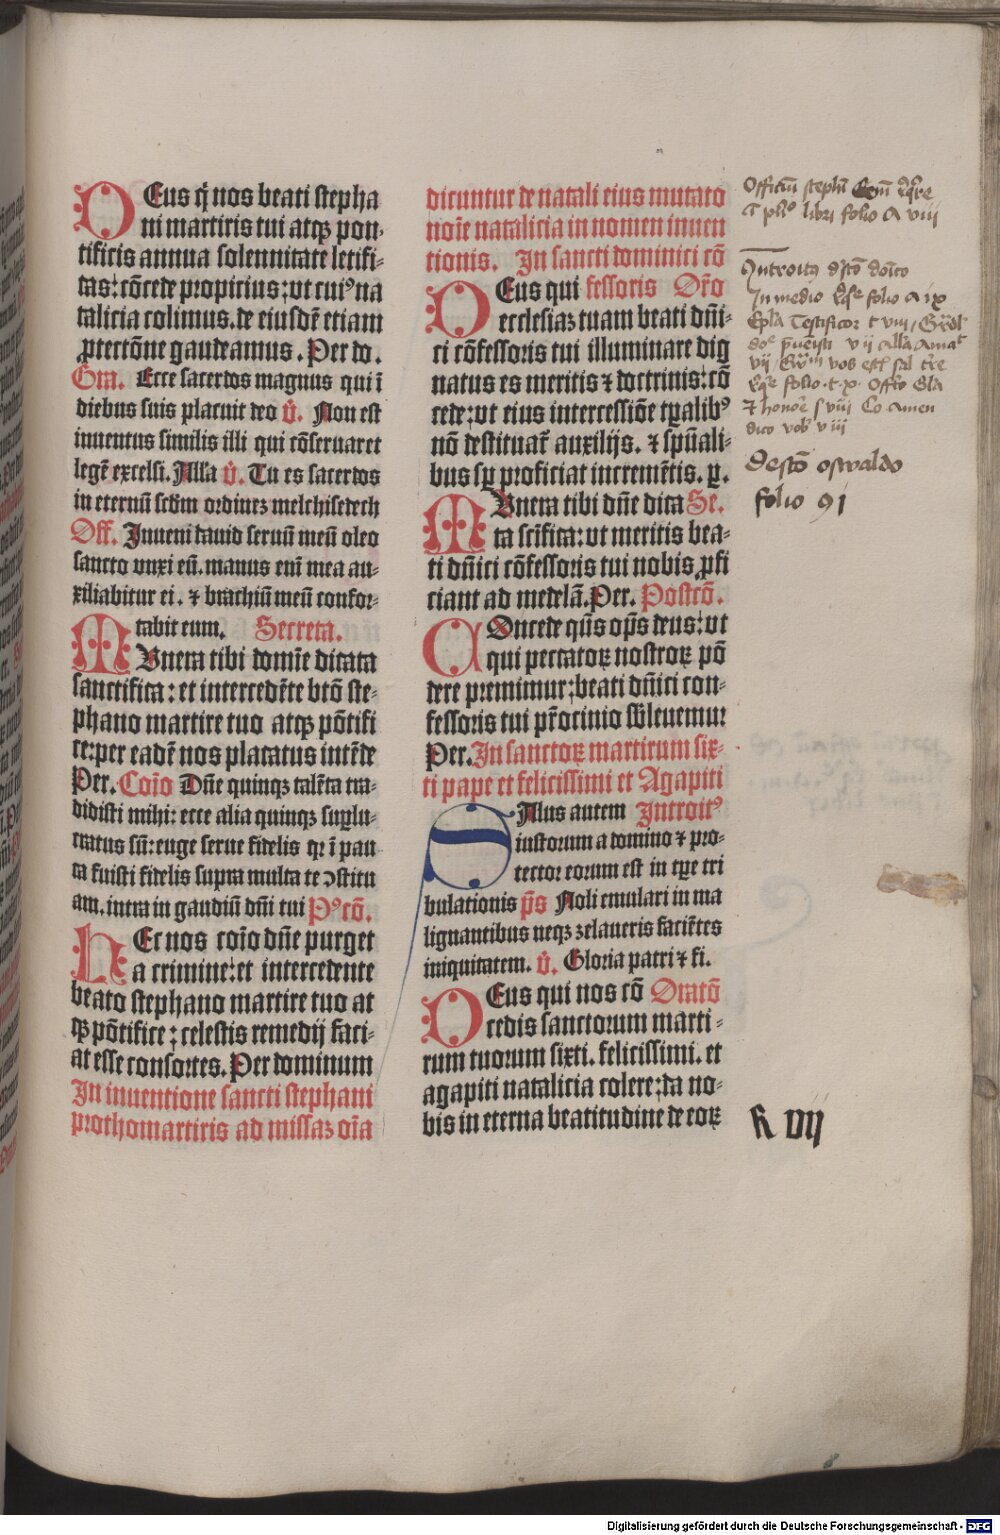 DEus q̄ nos beati stepha
ni martiris tui atqꝫ pon-
tificis annua solennitate letifi-
cas: cōcede propicius: vt cuiꝰ na
talicia colimus. de eiusdē etiam
ꝓtectōne gaudeamus. Per do.
Gra. Ecce sacerdos magnus qui ī
diebus suis placuit deo v̄. Non est
inuentus similis illi qui cōseruaret
legē excelsi. Alla v̄. Tu es sacerdos
in eternū scdm ordinez melchisedech
Off. Inueni dauid seruū meū oleo
sancto vnxi eū. manus enī mea au-
xiliabitur ei. ⁊ brachiū meū confor-
tabit eum. Secreta.
MUnera tibi domīe dicata
sanctifica: et intercedēte btō ste-
phano martire tuo atqꝫ pōtifi
ce: per eadē nos placatus intēde
Per. Coīo Dn̄e quinqꝫ talēta tra-
didisti mihi: ecce alia quinqꝫ suꝑlu-
cratus sū: euge serue fidelis qr ī pau
ca fuisti fidelis supra multa te ↄstitu
am. intra in gaudiū dn̄i tui Pꝰcō.
HEc nos coīo dn̄e purget
a crimine: et intercedente
beato stephano martire tuo at
qꝫ pōtifice: celestis remedij faci-
at esse consortes. Per dominum
In inuentione sancti stephani
prothomartiris ad missaz oīa
dicuntur de natali eius mutato
noīe natalicia in nomen inuen
tionis. In sancti dominici cō
DEus qui fessoris Or̄o
ecclesiaz tuam beati dn̄i-
ci cōfessoris tui illuminare dig
natus es meritis ⁊ doctrinis: cō
cede: vt eius intercessiōe tꝑalibꝰ
nō destituat̄ auxilijs. ⁊ spūali-
bus sꝑ proficiat incremētis. ꝑ.
MUnera tibi dn̄e dica Se.
ta scīfica: vt meritis bea-
ti dn̄ici cōfessoris tui nobis ꝓfi
ciant ad medelā. Per. Postcō.
COncede qs̄ op̄s deus: vt
qui peccatoꝝ nostroꝝ pō
dere premimur: beati dn̄ici con-
fessoris tui pr̄ocinio sb̄leuemur
Per. In sanctoꝝ martirum six-
ti pape et felicissimi et Agapiti
SAlus autem Introitꝰ
iustorum a domino ⁊ pro-
tector eorum est in tꝑe tri
bulationis p̄s Noli emulari in ma
lignantibus neqꝫ zelaueris faciētes
iniquitatem. v̄. Gloria patri ⁊ fi.
DEus qui nos cō Oratō
cedis sanctorum marti-
rum tuorum sixti. felicissimi. et
agapiti natalicia colere: da no-
bis in eterna beatitudine de eoꝝ
Officiū stephī
libri folio A viij
Introitꝰ dsctō doīco
In medio folio A ix
Epla Testificor t viij
vij alla Amat
vij vos estis sal tr̄e
folio t x Offō
⁊ honore s viij Co Amen
dico vobꝭ v iij
de sctō oswaldo
folio 91
R vij
Digitalisierung gefördert durch die Deutsche Forschungsgemeinschaft - DFG